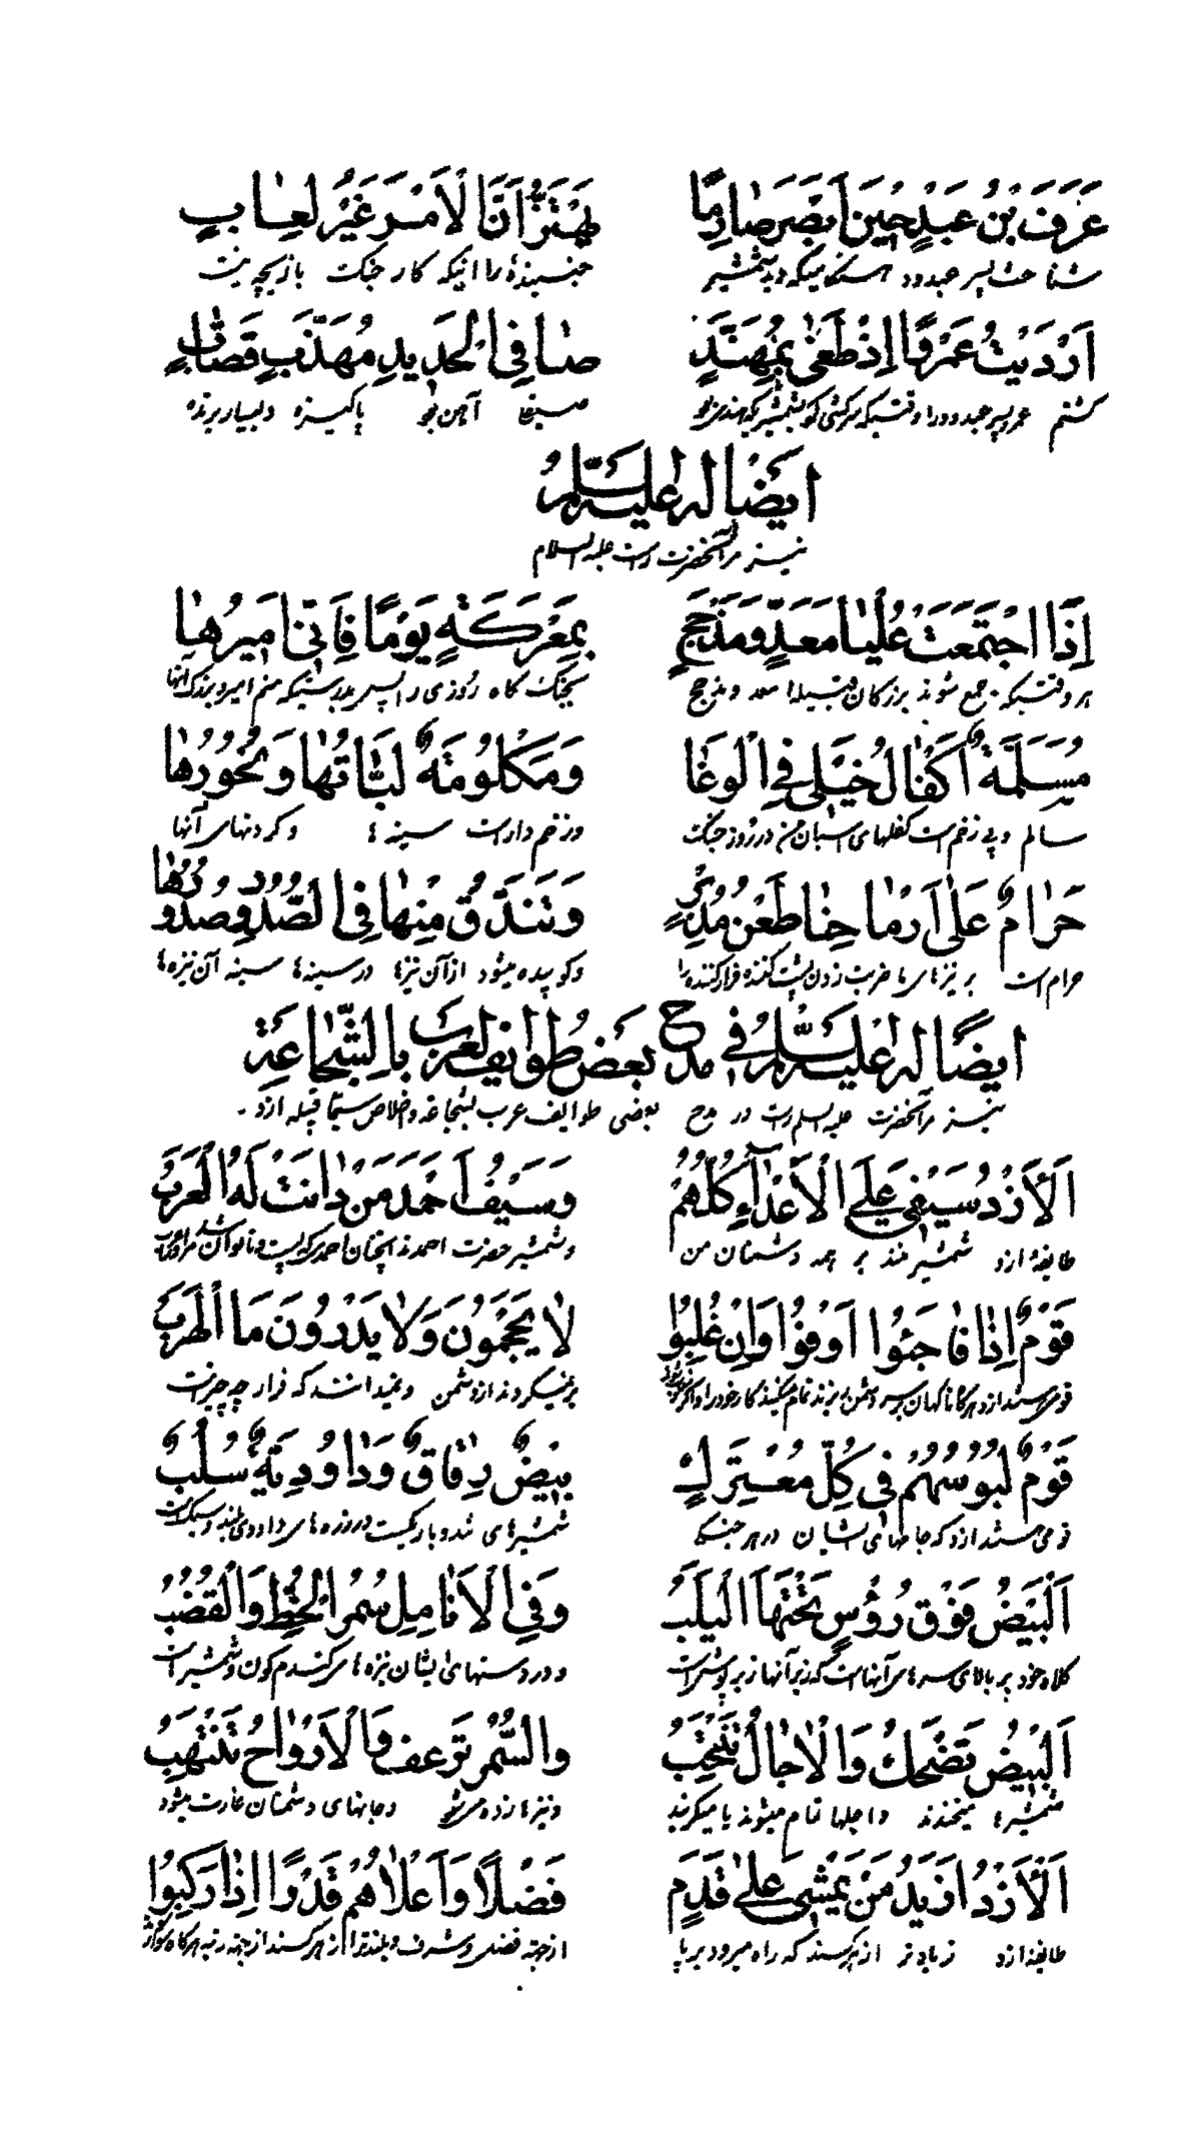 عَرَفَ بنُ عَبدٍ حينَ اَبصَرَ صارِمًا یَهتَزُّ اَنَّ الاَمرَ غَیرُ لِعابٍ
شناخت پسر عبدود هنگامیکه دید شمشیر جنبنده را اینکه کار جنک بازیچه نیست
اَردَیتُ عَمرًوا اِذ طَغیٰ بِمُهَنَّدٍ صافِی الحَدیدِ مُهَذَّبٍ قَضّابٍ
کشتم عمرو پسر عبدود را وقتیکه سرکشی کرد بشمشیر که هندی بود صیقل آهن بود پاکیزه و بسیار برنده
ایضًا له علیه السلام
نیز مر آنحضرت راست علیه السلام
اِذَا اجتَمَعَت عُلیا مَعَدٍّ و مَذحِجٍ بِمَعرَکَةٍ یَومًا فَاِنّی اَمیرُها
هر وقتیکه جمع شوند بزرکان قبیله معد و مذحج بجنک کاه روزی را پس بدرستیکه منم امیر و بزرک آنها
مُسَلَّمَةٌ اَکفالُ خَیلی فِی الوَغا وَ مَکلُومَةٌ لَبّاتُها وَ نُحُورُها
سالم و بی زخم است کفلهای اسبان من در روز جنک و زخم دار است سینه ها و کردنهای آنها
حَرامٌ عَلیٰ اَرماحِنا طَعنُ مُدبِرٍ وَ تَندَقُّ مِنها فِی الصُّدُورِ صُدُورُها
حرام است بر نیزهای ما ضربت زدن پشت کننده فرار کننده را و کوبیده میشود از آن نیزها در سینه ها سینه آن نیزه ها
ایضًا له علیه السلام فی مدح بعض طوایف العرب بالشّجاعة
نیز مر آنحضرت علیه السلام راست در مدح بعضی طوایف عرب بشجاعة و اخلاص سیّما قبیله ازد
اَلاَزدُ سَیفی عَلَی الاَعداءِ کُلُّهُم وَ سَیفُ اَحمَدَ مَن دانَت لَهُ العَرَبُ
طایفهٔ ازد شمشیر منند بر همه دشمنان من و شمشیر حضرت احمدند
قَومٌ اِذا فاجَئوا اَوفَوا وَ اِن غُلِبُوا لا یُحجِمُونَ وَ لا یَدرُونَ مَا الهَرَبُ
برنمیکردند از دشمن و نمیدانند که فرار چه چیز است
قَومٌ لَبُوسُهُم فی کُلِّ مُعتَرَکٍ بیضٌ رِقاقٌ وَ داوُدِیَّةٌ سُلُبُ
قومی هستند ازد که جامهای ایشان در هر جنکی شمشیرهای تند و باریکست و زره های داودی
اَلبَیضُ فَوقَ رُؤُسٍ تَحتَهَا الیَلَبُ وَ فِی الاَنامِلِ سُمرُ الخَطِّ وَ القُضُبُ
کلاه خود بر بالای سرهای آنها است که زیر آنها و در دستهای ایشان نیزه های کندم کون و شمشیر است
اَلبیضُ تَضحَکُ وَ الآجالُ تَنتَحِبُ وَ السُّمرُ تَرعَفُ وَ الاَرواحُ تَنتَهِبُ
شمشیرها میخندند و اجلها تمام میشوند یا میکریند و نیزها و جانهای دشمنان غارت میشود
اَلاَزدُ اَزیَدُ مَن یَمشی عَلیٰ قَدَمٍ فَضلًا وَ اَعلاهُم قَدرًا اِذا رَکِبُوا
طایفهٔ ازد زیادتر از هر کسند که راه میرود بر پا از جهة فضل و شرف و بلندتر از هر کسند از جهة رتبه هر کاه سوار